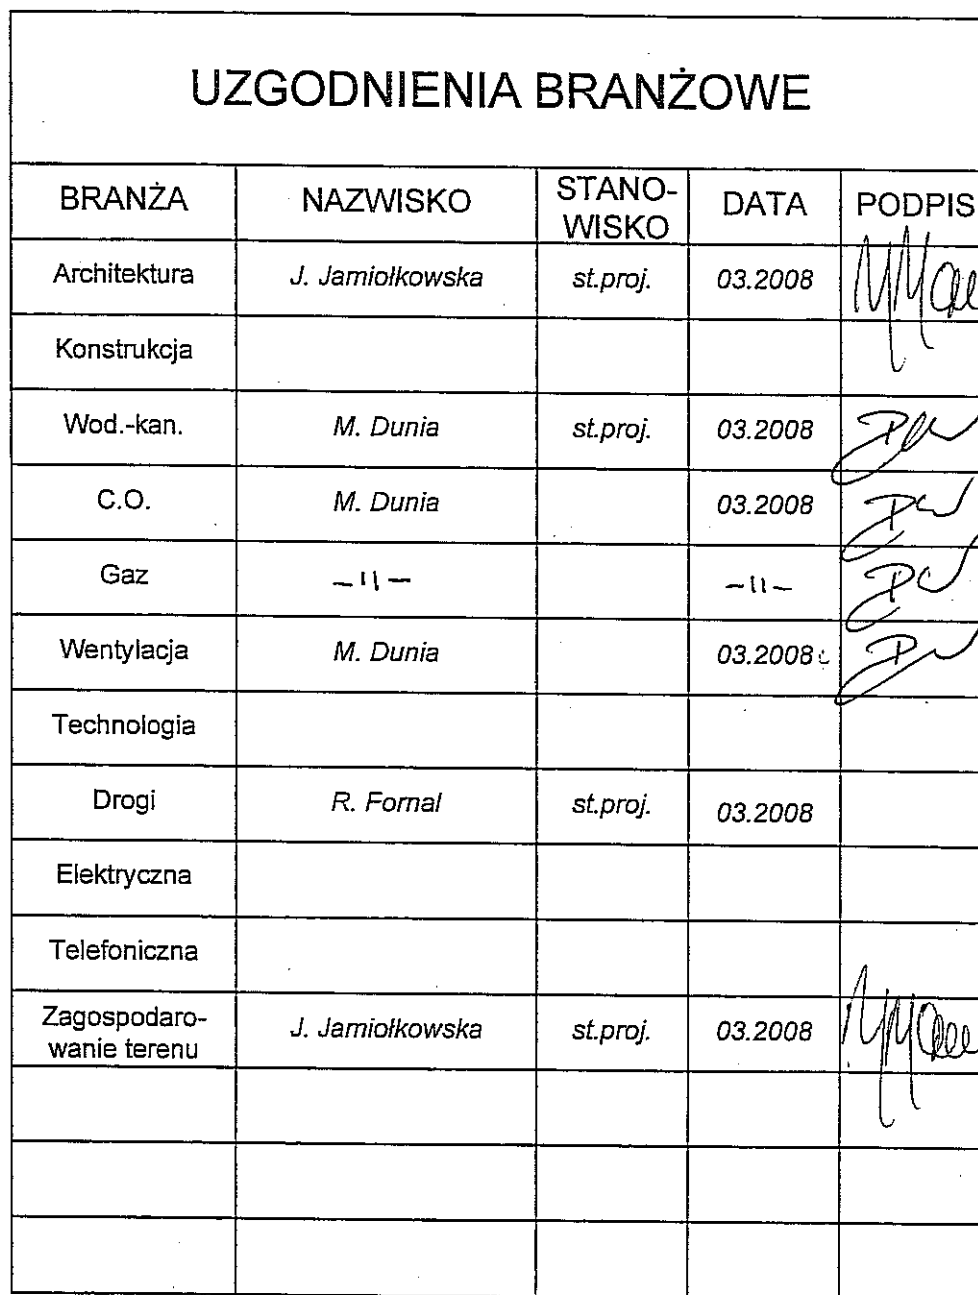 UZGODNIENIA BRANŻOWE
BRANŻA NAZWISKO STANO-
WISKO DATA PODPIS
Architektura J. Jamiołkowska st.proj. 03.2008
Konstrukcja
Wod.-kan. M. Dunia st.proj. 03.2008
C.O. M. Dunia 03.2008
Gaz –11– –11–
Wentylacja M. Dunia 03.2008
Technologia
Drogi R. Fornal st.proj. 03.2008
Elektryczna
Telefoniczna
Zagospodaro-
wanie terenu J. Jamiołkowska st.proj. 03.2008